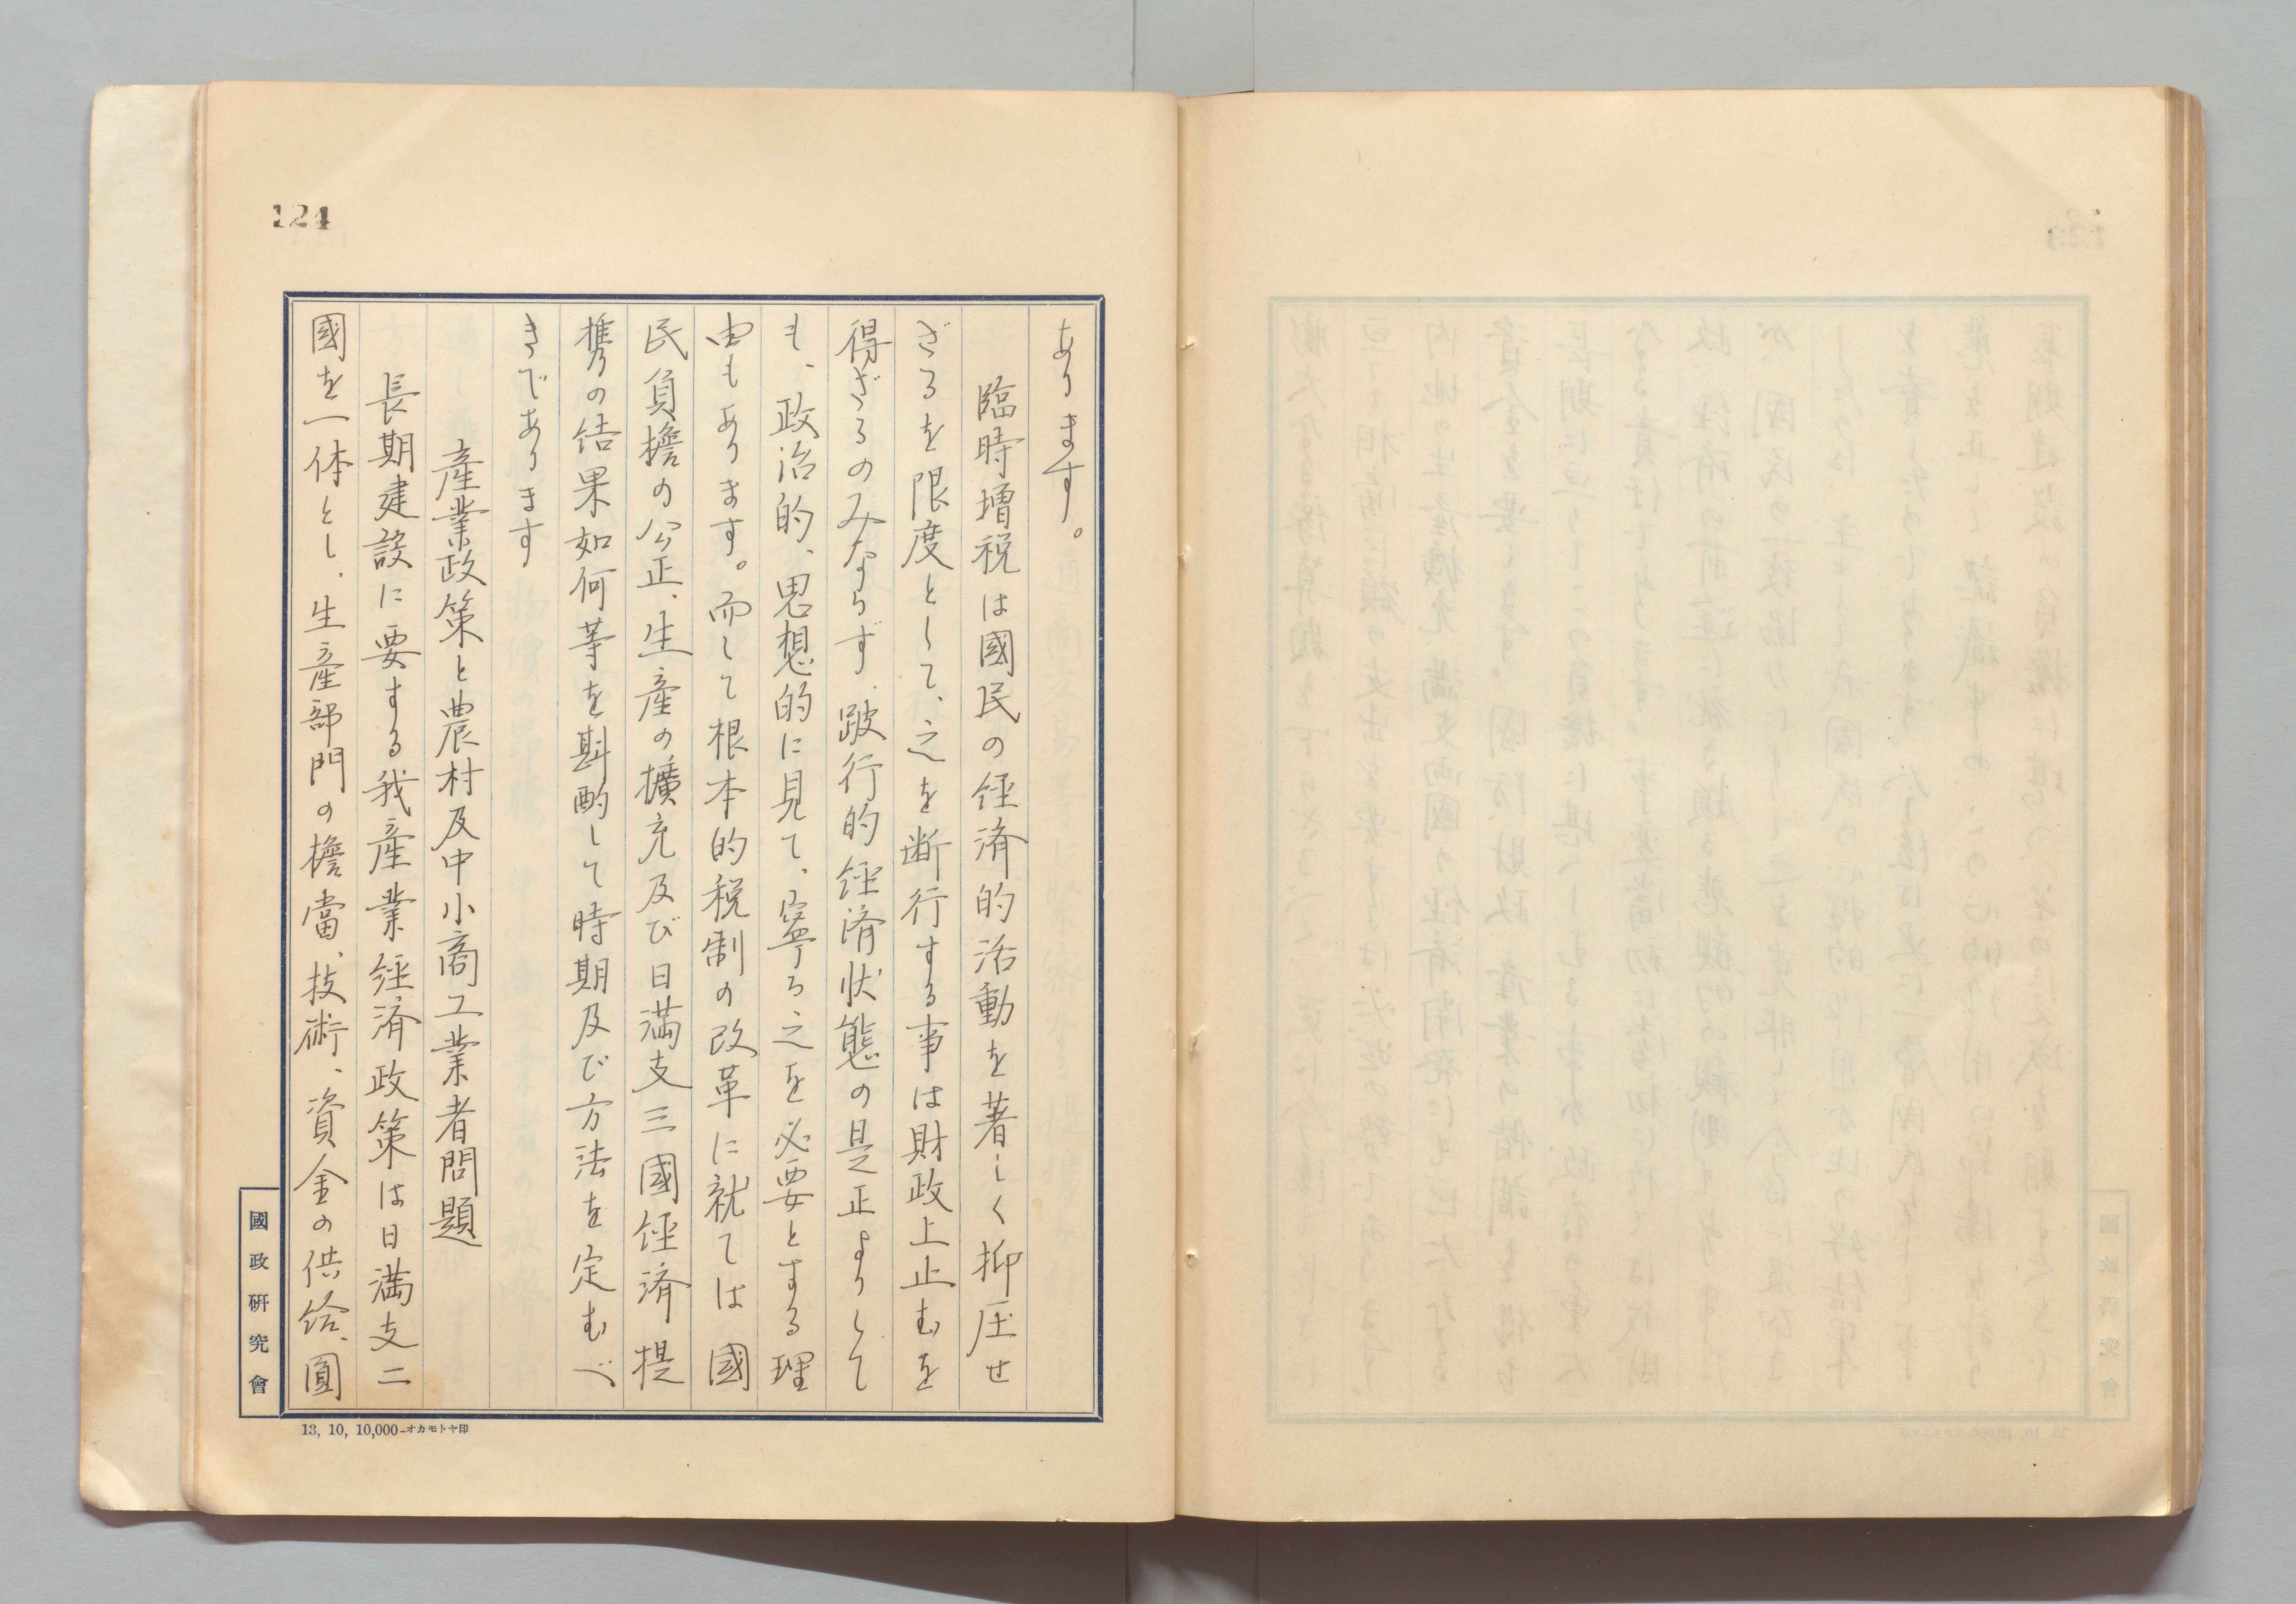 124
あります。
臨時増税は國民の経済的活動を著しく抑圧せ
ざるを限度として、之を断行する事は財政上止むを
得ざるのみならず、跛行的経済状態の是正よりして
も、政治的、思想的に見て、寧ろ之を必要とする理
由もあります。而して根本的税制の改革に就ては國
民負擔の公正、生産の擴充及び日満支三國経済提
携の結果如何等を斟酌して時期及び方法を定むべ
きであります
産業政策と農村及中小商工業者問題
長期建設に要する我産業経済政策は日満支二
國を一体とし、生産部門の擔當、技術、資金の供給、圓
國政研究會
13, 10, 10,000—オカモトヤ印